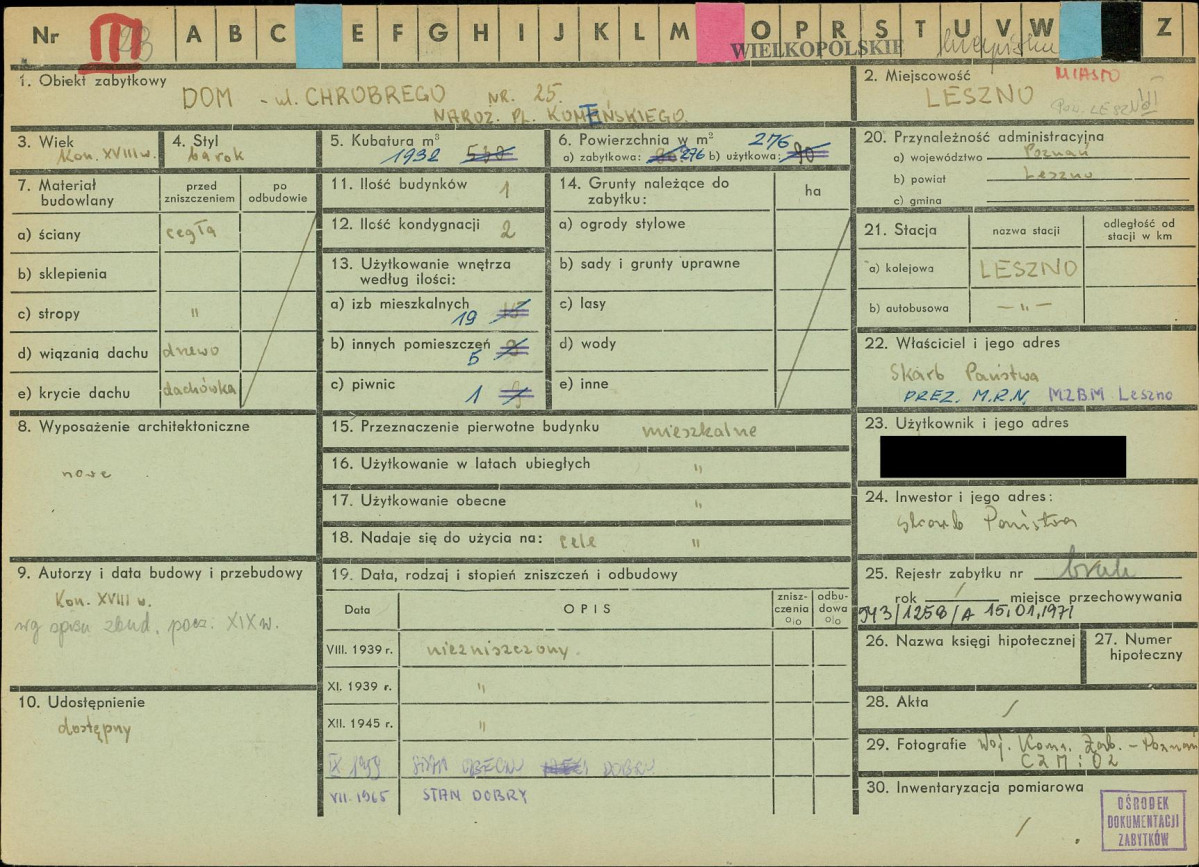 Nr III A B C E F G H I J K L M O P R S T U V W Z
WIELKOPOLSKIE
1. Obiekt zabytkowy
DOM - ul. CHROBREGO NR. 25.
NAROŻ. PL. KOMEŃSKIEGO.
2. Miejscowość MIASTO
LESZNO POW. LESZNO
3. Wiek
Kon. XVIII w.
4. Styl
barok
5. Kubatura m³
1932 530
6. Powierzchnia w m² 276
a) zabytkowa: 276 b) użytkowa: 90
20. Przynależność administracyjna
a) województwo Poznań
b) powiat Leszno
c) gmina
7. Materiał budowlany
przed zniszczeniem
po odbudowie
a) ściany cegła
b) sklepienia
c) stropy "
d) wiązania dachu drzewo
e) krycie dachu dachówka
11. Ilość budynków 1
12. Ilość kondygnacji 2
13. Użytkowanie wnętrza według ilości:
a) izb mieszkalnych
19
b) innych pomieszczeń
5
c) piwnic 1
14. Grunty należące do zabytku:
ha
a) ogrody stylowe
b) sady i grunty uprawne
c) lasy
d) wody
e) inne
21. Stacja
nazwa stacji
odległość od stacji w km
a) kolejowa LESZNO
b) autobusowa — " —
22. Właściciel i jego adres
Skarb Państwa
PREZ. M.R.N. MZBM Leszno
8. Wyposażenie architektoniczne
nowe
15. Przeznaczenie pierwotne budynku mieszkalne
16. Użytkowanie w latach ubiegłych "
17. Użytkowanie obecne "
18. Nadaje się do użycia na: cele "
23. Użytkownik i jego adres
24. Inwestor i jego adres:
Skarb Państwa
9. Autorzy i data budowy i przebudowy
Kon. XVIII w.
wg spisu zbud. pocz. XIX w.
19. Data, rodzaj i stopień zniszczeń i odbudowy
Data
OPIS
znisz-czenia %
odbu-dowa %
VIII. 1939 r. niezniszczony.
XI. 1939 r. "
XII. 1945 r. "
IX 1959 STAN OBECNY DOBRY
VII. 1965 STAN DOBRY
25. Rejestr zabytku nr brak
rok / miejsce przechowywania
943/1258/A 15.01.1971
26. Nazwa księgi hipotecznej
27. Numer hipoteczny
10. Udostępnienie
dostępny
28. Akta /
29. Fotografie Woj. Kons. Zab. - Poznań
CZM i OZ
30. Inwentaryzacja pomiarowa
/
OŚRODEK
DOKUMENTACJI
ZABYTKÓW